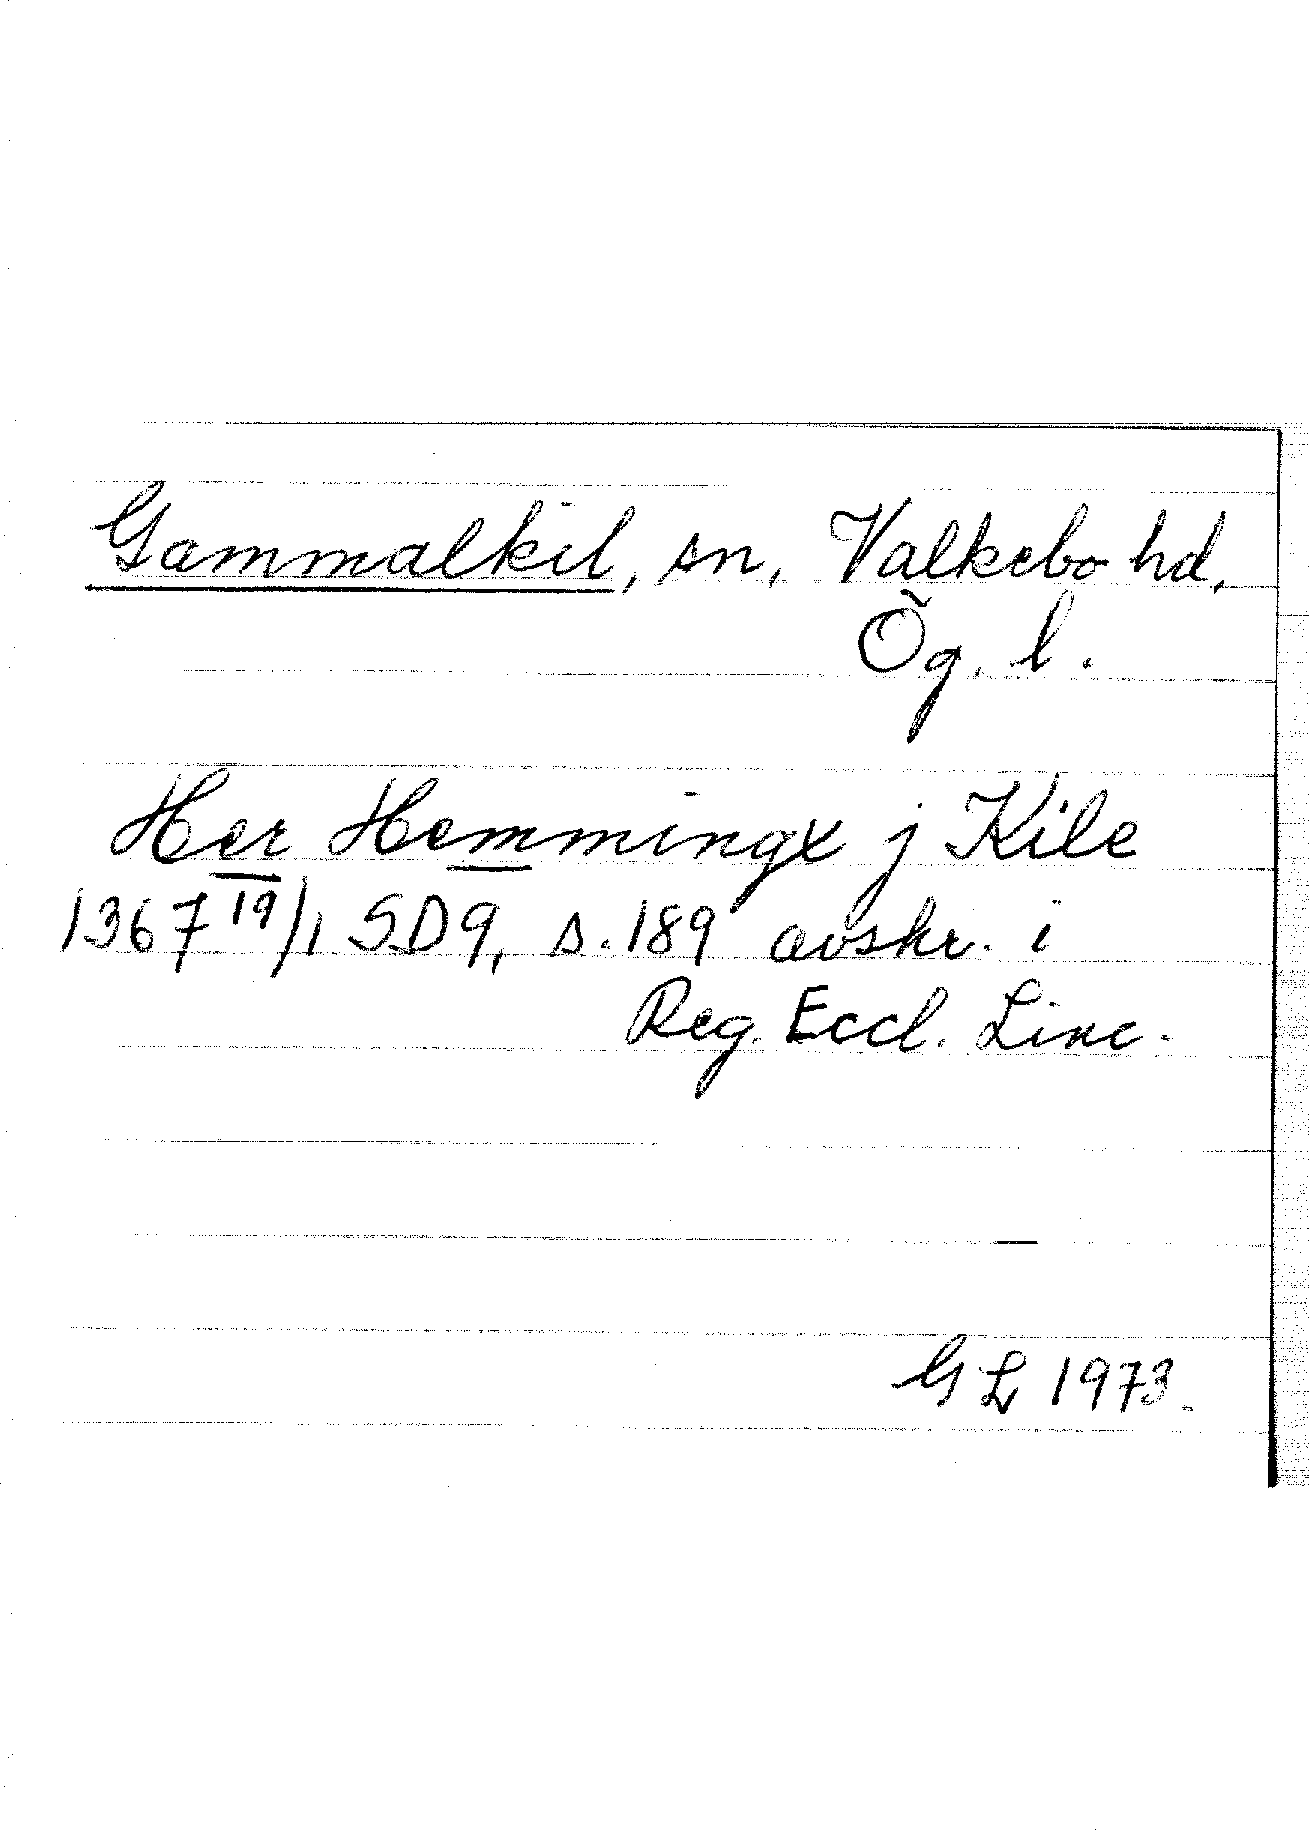 Gammalkil, sn, Valkebo hd,
Ög. l.
Her Hemmingx j Kile
1367 19/1 SD9, s. 189 avskr. i
Reg. Eccl. Linc.
GL 1973.